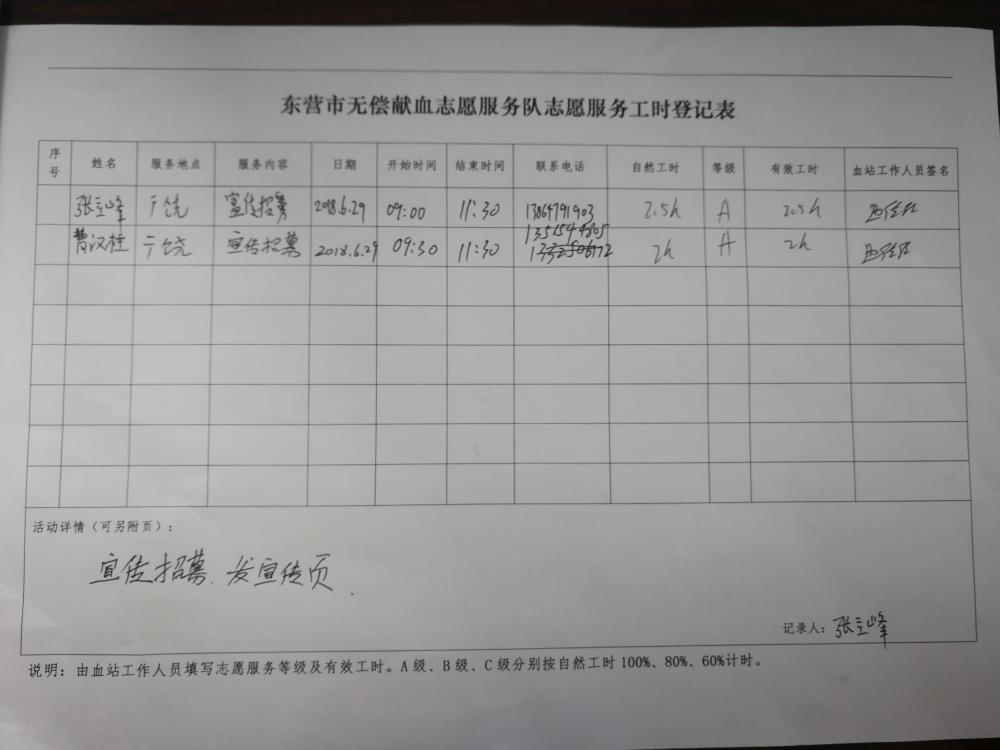 东营市无偿献血志愿服务队志愿服务工时登记表
序号 姓名 服务地点 服务内容 日期 开始时间 结束时间 联系电话 自然工时 等级 有效工时 血站工作人员签名
张立峰 广饶 宣传招募 2018.6.29 09:00 11:30 13864791903 2.5h A 2.5h
曹汉桂 广饶 宣传招募 2018.6.29 09:30 11:30 2h A 2h
活动详情（可另附页）：
宣传招募、发宣传页.
记录人：张立峰
说明：由血站工作人员填写志愿服务等级及有效工时。A级、B级、C级分别按自然工时100%、80%、60%计时。